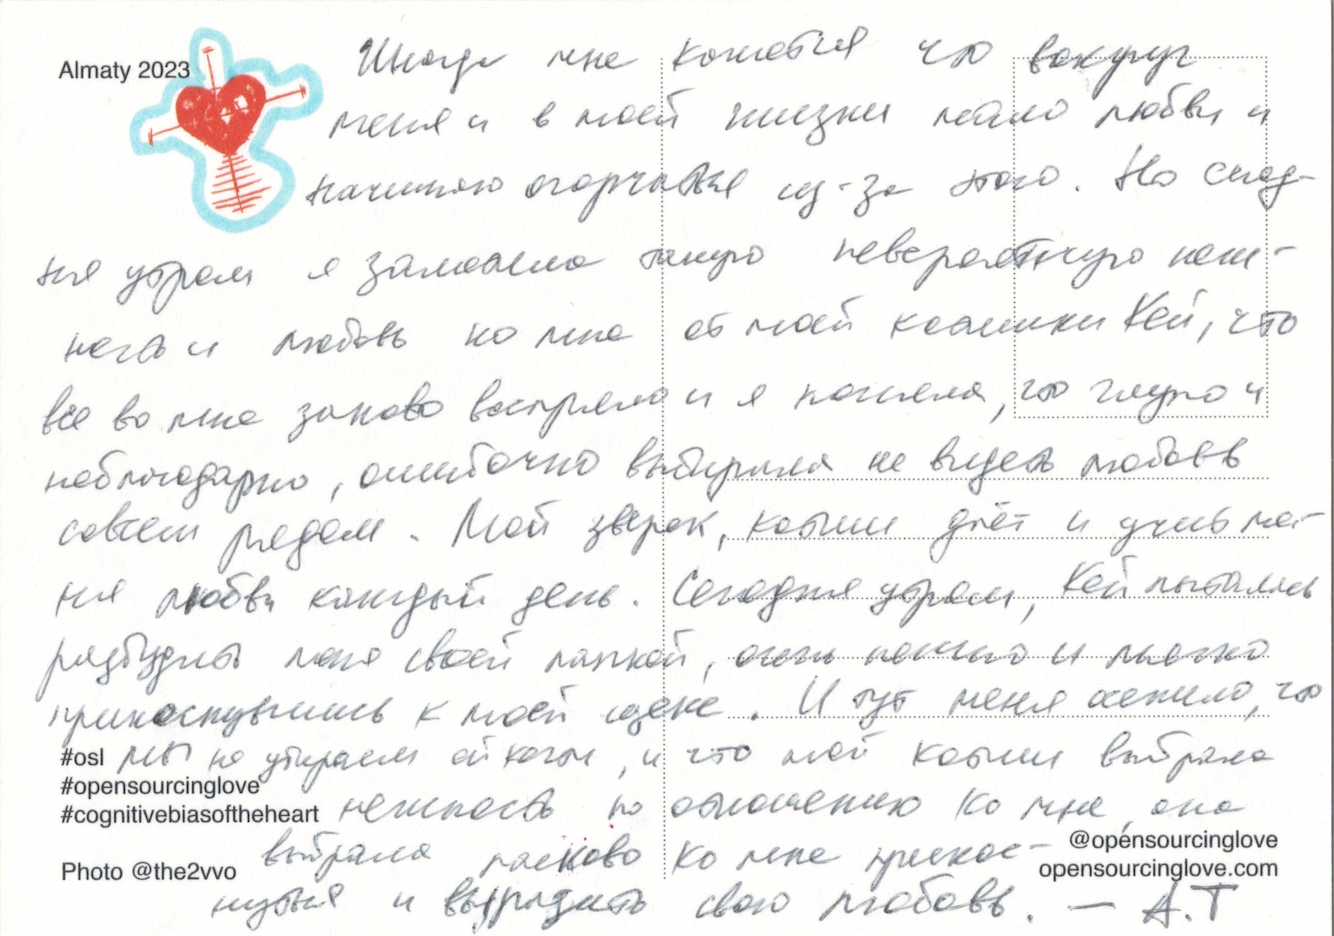 Almaty 2023
Иногда мне кажется что вокруг
меня и в моей жизни мало любви и
начинаю огорчаться из-за этого. Но сегод-
ня утром я заметила такую невероятную неж-
ность и любовь ко мне от моей кошки Кей, что
все во мне заново воспряло и я поняла, что глупо и
неблагодарно, ошибочно выбирала не видеть любовь
совсем рядом. Мой зверек, кошки даёт и учит ме-
ня любви каждый день. Сегодня утром, Кей пыталась
разбудить меня своей лапкой, очень нежно и мягко
прикоснувшись к моей щеке. И тут меня осенило, что
#osl мы не убираем ей когти, и что мой кошки выбрала
#opensourcinglove
#cognitivebiasoftheheart нежность по отношению ко мне, она
выбрала ласково ко мне прикос-
нуться и выразить свою любовь. — А.Т
@opensourcinglove
Photo @the2vvo
opensourcinglove.com